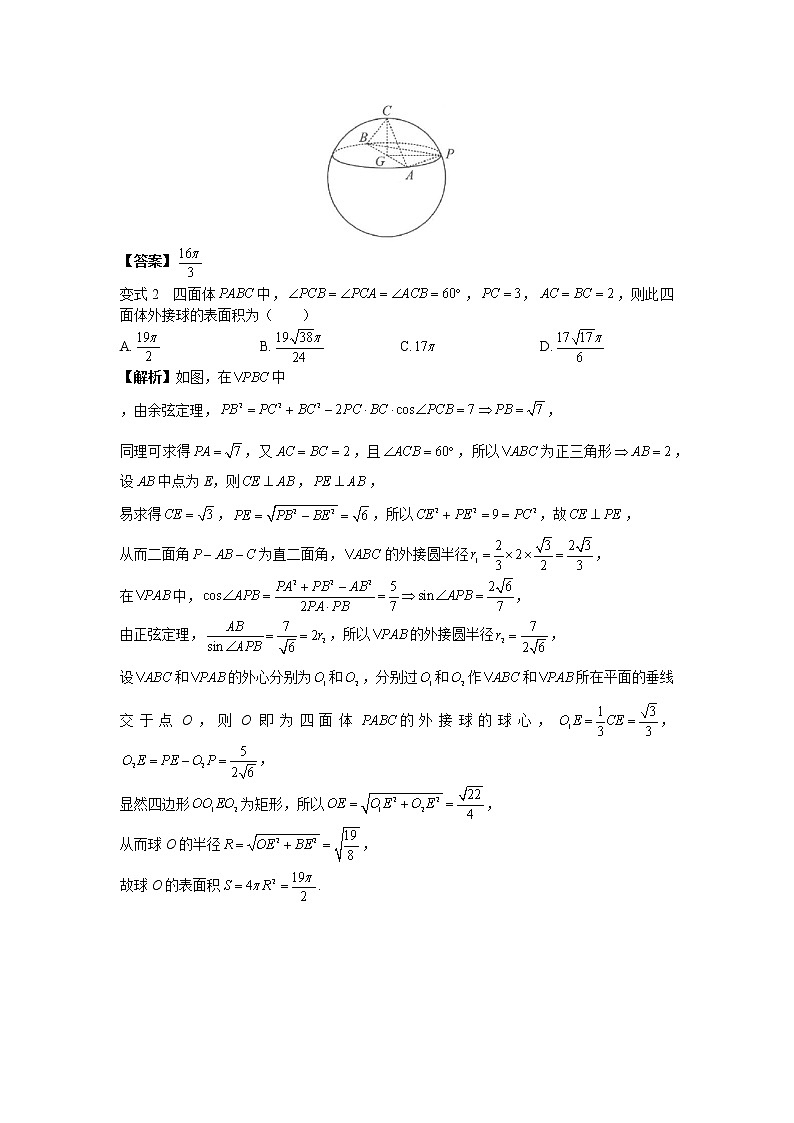 C
B
P
G
A
【答案】16π/3
变式 2 四面体 PABC 中，∠PCB = ∠PCA = ∠ACB = 60°，PC = 3，AC = BC = 2，则此四
面体外接球的表面积为（ ）
A. 19π/2 B. 19√38π/24 C. 17π D. 17√17π/6
【解析】如图，在 VPBC 中
，由余弦定理，PB² = PC² + BC² − 2PC · BC · cos∠PCB = 7 ⇒ PB = √7，
同理可求得 PA = √7，又 AC = BC = 2，且 ∠ACB = 60°，所以 VABC 为正三角形 ⇒ AB = 2，
设 AB 中点为 E，则 CE ⊥ AB，PE ⊥ AB，
易求得 CE = √3，PE = √(PB² − BE²) = √6，所以 CE² + PE² = 9 = PC²，故 CE ⊥ PE，
从而二面角 P − AB − C 为直二面角，VABC 的外接圆半径 r₁ = 2/3 × 2 × √3/2 = 2√3/3，
在 VPAB 中，cos∠APB = (PA² + PB² − AB²)/(2PA · PB) = 5/7 ⇒ sin∠APB = 2√6/7，
由正弦定理，AB/sin∠APB = 7/√6 = 2r₂，所以 VPAB 的外接圆半径 r₂ = 7/(2√6)，
设 VABC 和 VPAB 的外心分别为 O₁ 和 O₂，分别过 O₁ 和 O₂ 作 VABC 和 VPAB 所在平面的垂线
交于点 O，则 O 即为四面体 PABC 的外接球的球心，O₁E = 1/3 CE = √3/3，
O₂E = PE − O₂P = 5/(2√6)，
显然四边形 OO₁EO₂ 为矩形，所以 OE = √(O₁E² + O₂E²) = √22/4，
从而球 O 的半径 R = √(OE² + BE²) = √(19/8)，
故球 O 的表面积 S = 4πR² = 19π/2.